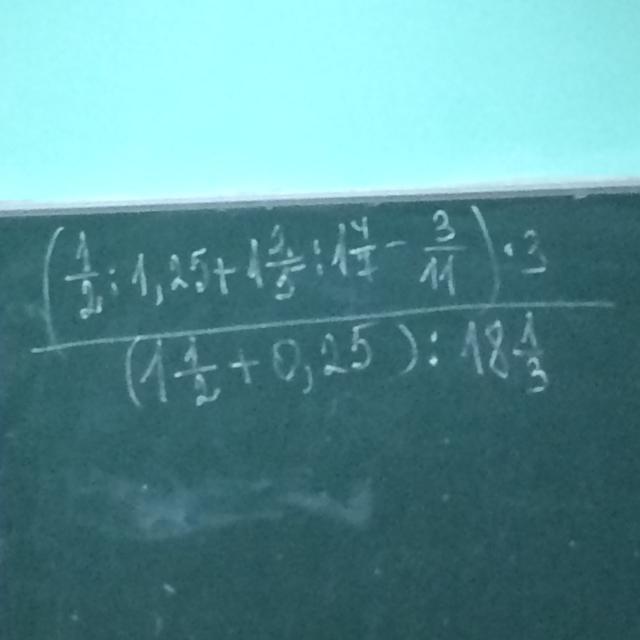 (1/2 : 1,25 + 1 2/5 : 1 4/7 - 3/11) · 3
(1 1/2 + 0,25) : 18 1/3